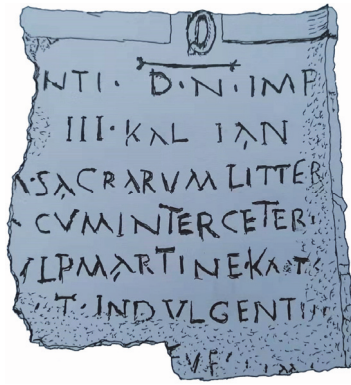 NTI · D · N · IMP
III · KAL IAN
A · SACRARVM LITTER
CVM INTER CETER
VLP MARTINE · KA
T · INDVLGENTI
VF